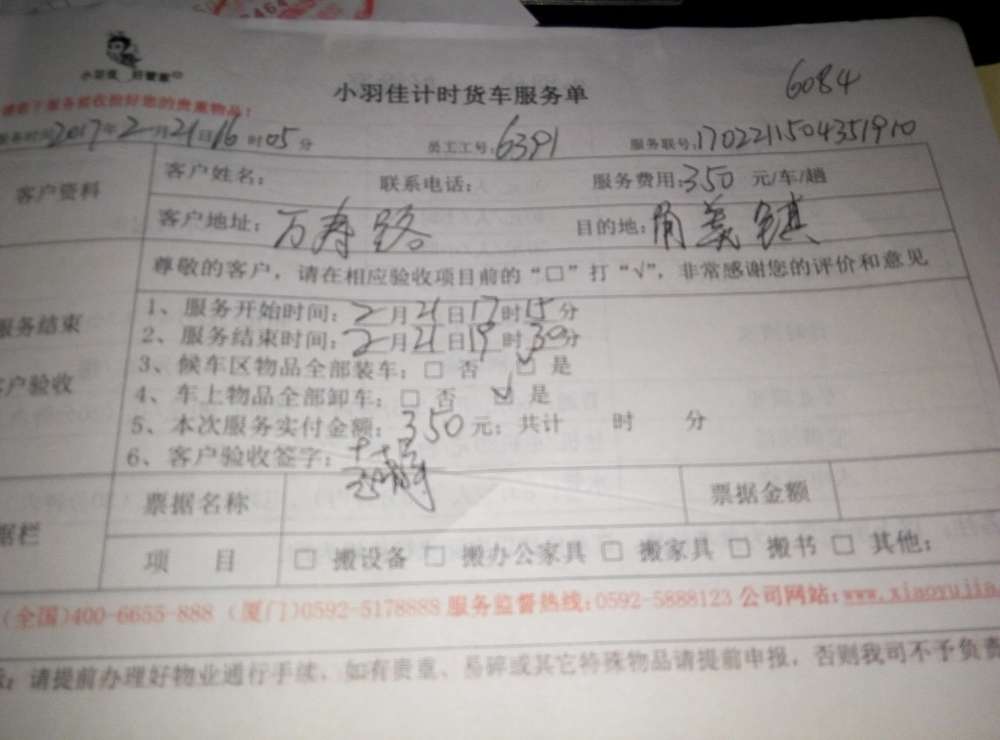 小羽佳 好管家
小羽佳计时货车服务单
6084
服务时间2017年2月21日16时05分 员工工号:6391 服务联号:1702211504351910
客户资料
客户姓名: 联系电话: 服务费用:350 元/车/趟
客户地址:万寿路 目的地:角美镇
尊敬的客户，请在相应验收项目前的“□”打“√”，非常感谢您的评价和意见
服务结束
客户验收
1、服务开始时间:2月21日17时15分
2、服务结束时间:2月21日19时30分
3、候车区物品全部装车:□ 否 ☑ 是
4、车上物品全部卸车:□ 否 ☑ 是
5、本次服务实付金额:350元;共计 时 分
6、客户验收签字:
据栏
票据名称 票据金额
项 目 □ 搬设备 □ 搬办公家具 □ 搬家具 □ 搬书 □ 其他:
(全国)400-6655-888 (厦门)0592-5178888 服务监督热线:0592-5888123 公司网站:www.xiaoyujia
请提前办理好物业通行手续，如有贵重、易碎或其它特殊物品请提前申报，否则我司不予负责